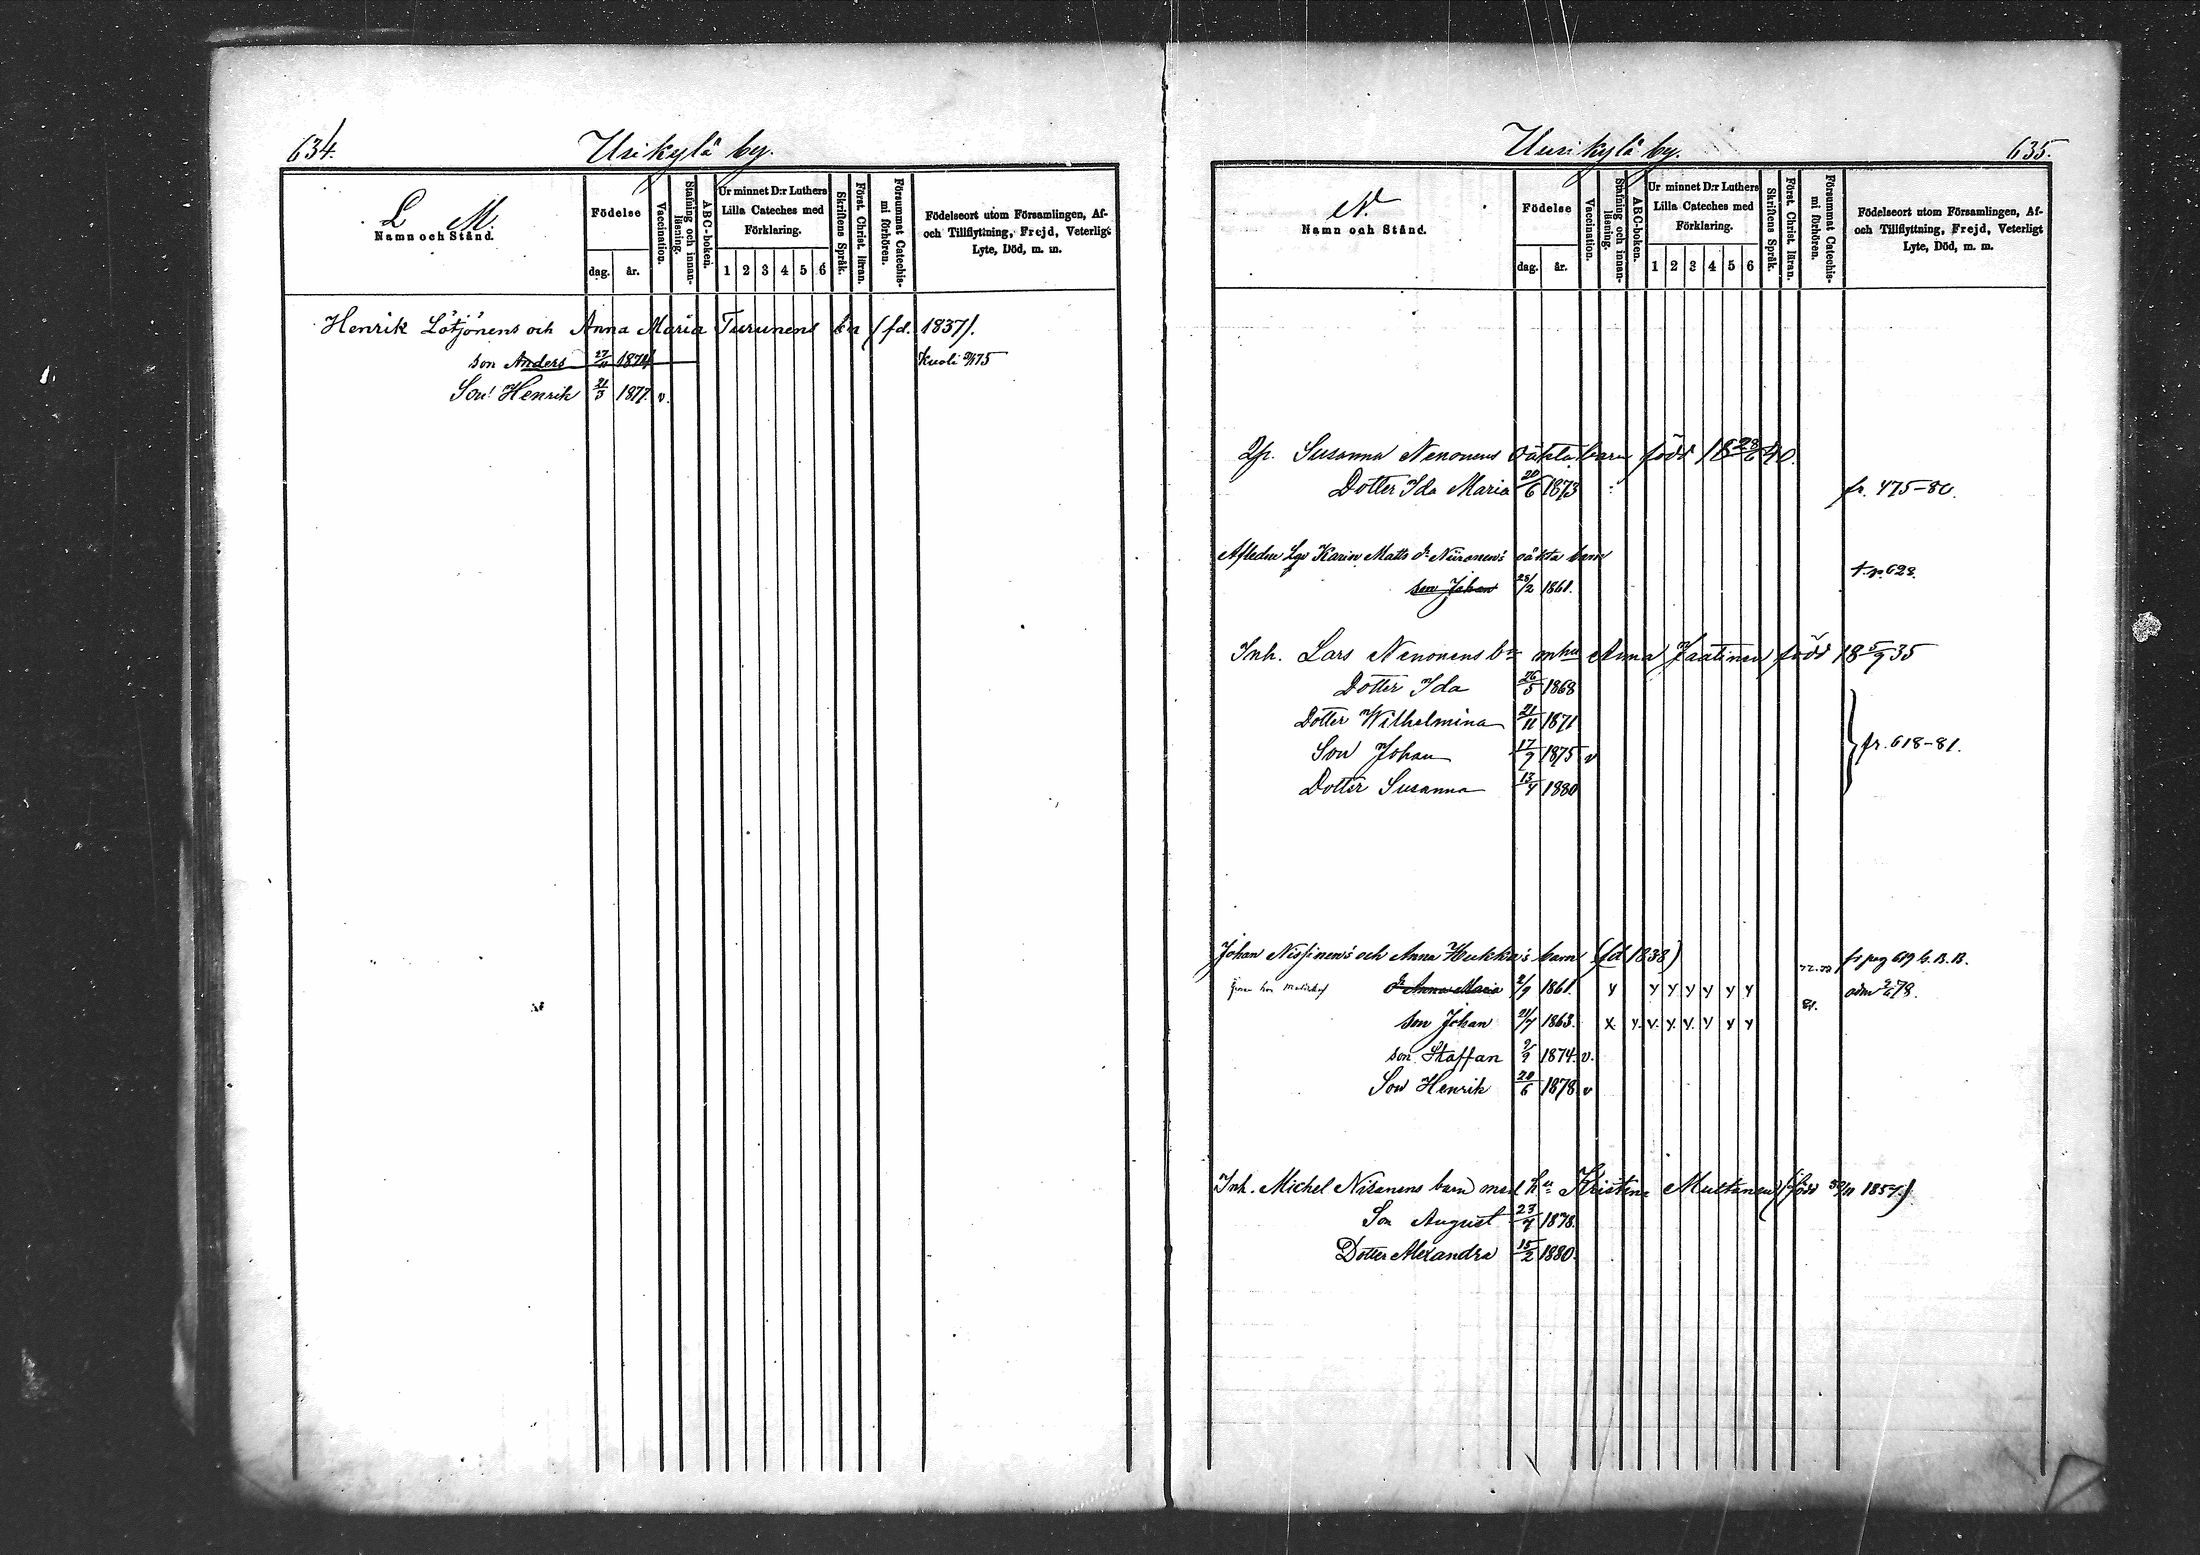 634.
Usikylä by.
L M.
Namn och Stånd.
Födelse
dag. år.
Vaccination.
Stafning och innan-läsning.
ABC-boken.
Ur minnet D:r Luthers
Lilla Cateches med
Förklaring.
1 2 3 4 5 6
Skriftens Språk.
Först. Christ. läran.
Försummat Catechis-mi förhören.
Födelseort utom Församlingen, Af-
och Tillflyttning, Frejd, Veterligt
Lyte, Död, m. m.
Henrik Lötjönens och Anna Maria Turunens bn (fd. 1837).
son Anders 27/11 1874 Kuoli 75
Son Henrik 21/3 1877. v.
Uusikylä by.
635.
N.
Namn och Stånd.
Födelse
dag. år.
Vaccination.
Stafning och innan-läsning.
ABC-boken.
Ur minnet D:r Luthers
Lilla Cateches med
Förklaring.
1 2 3 4 5 6
Skriftens Språk.
Först. Christ. läran.
Försummat Catechis-mi förhören.
Födelseort utom Församlingen, Af-
och Tillflyttning, Frejd, Veterligt
Lyte, Död, m. m.
Susanna Nenonens oäkta barn född 18 28/6 40.
Dotter Ida Maria 20/6 1873 fr. 475-80.
Karin Matts dr Niiranen's oäkta barn
son Johan 28/2 1861. t.p. 628.
Inh. Lars Nenonens bn m hu Anna Kaatinen född 18 5/9 35
Dotter Ida 26/5 1868
Dotter Wilhelmina 21/11 1871
Son Johan 17/9 1875 v fr. 618-81.
Dotter Susanna 13/4 1880
Johan Nissinen's och Anna Hukka's barn (fd 1838) fr pag 619 b. B. B.
dr Anna Maria 2/9 1861. y y y y y y y adm 78.
81.
son Johan 21/7 1863. x y. v. y. v. y y y
son Staffan 2/9 1874 v.
Son Henrik 20/6 1878 v
Inh. Michel Niranens barn med hu Kristina Multanen (född 30/11 1857.)
Son August 23/4 1878.
Dotter Alexandra 15/2 1880.